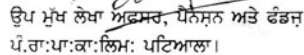 ਉਪ ਮੁੱਖ ਲੇਖਾ ਅਫਸਰ, ਪੈਨਸ਼ਨ ਅਤੇ ਫੰਡਜ਼
ਪੰ.ਰਾ:ਪਾ:ਕਾ:ਲਿਮ: ਪਟਿਆਲਾ।